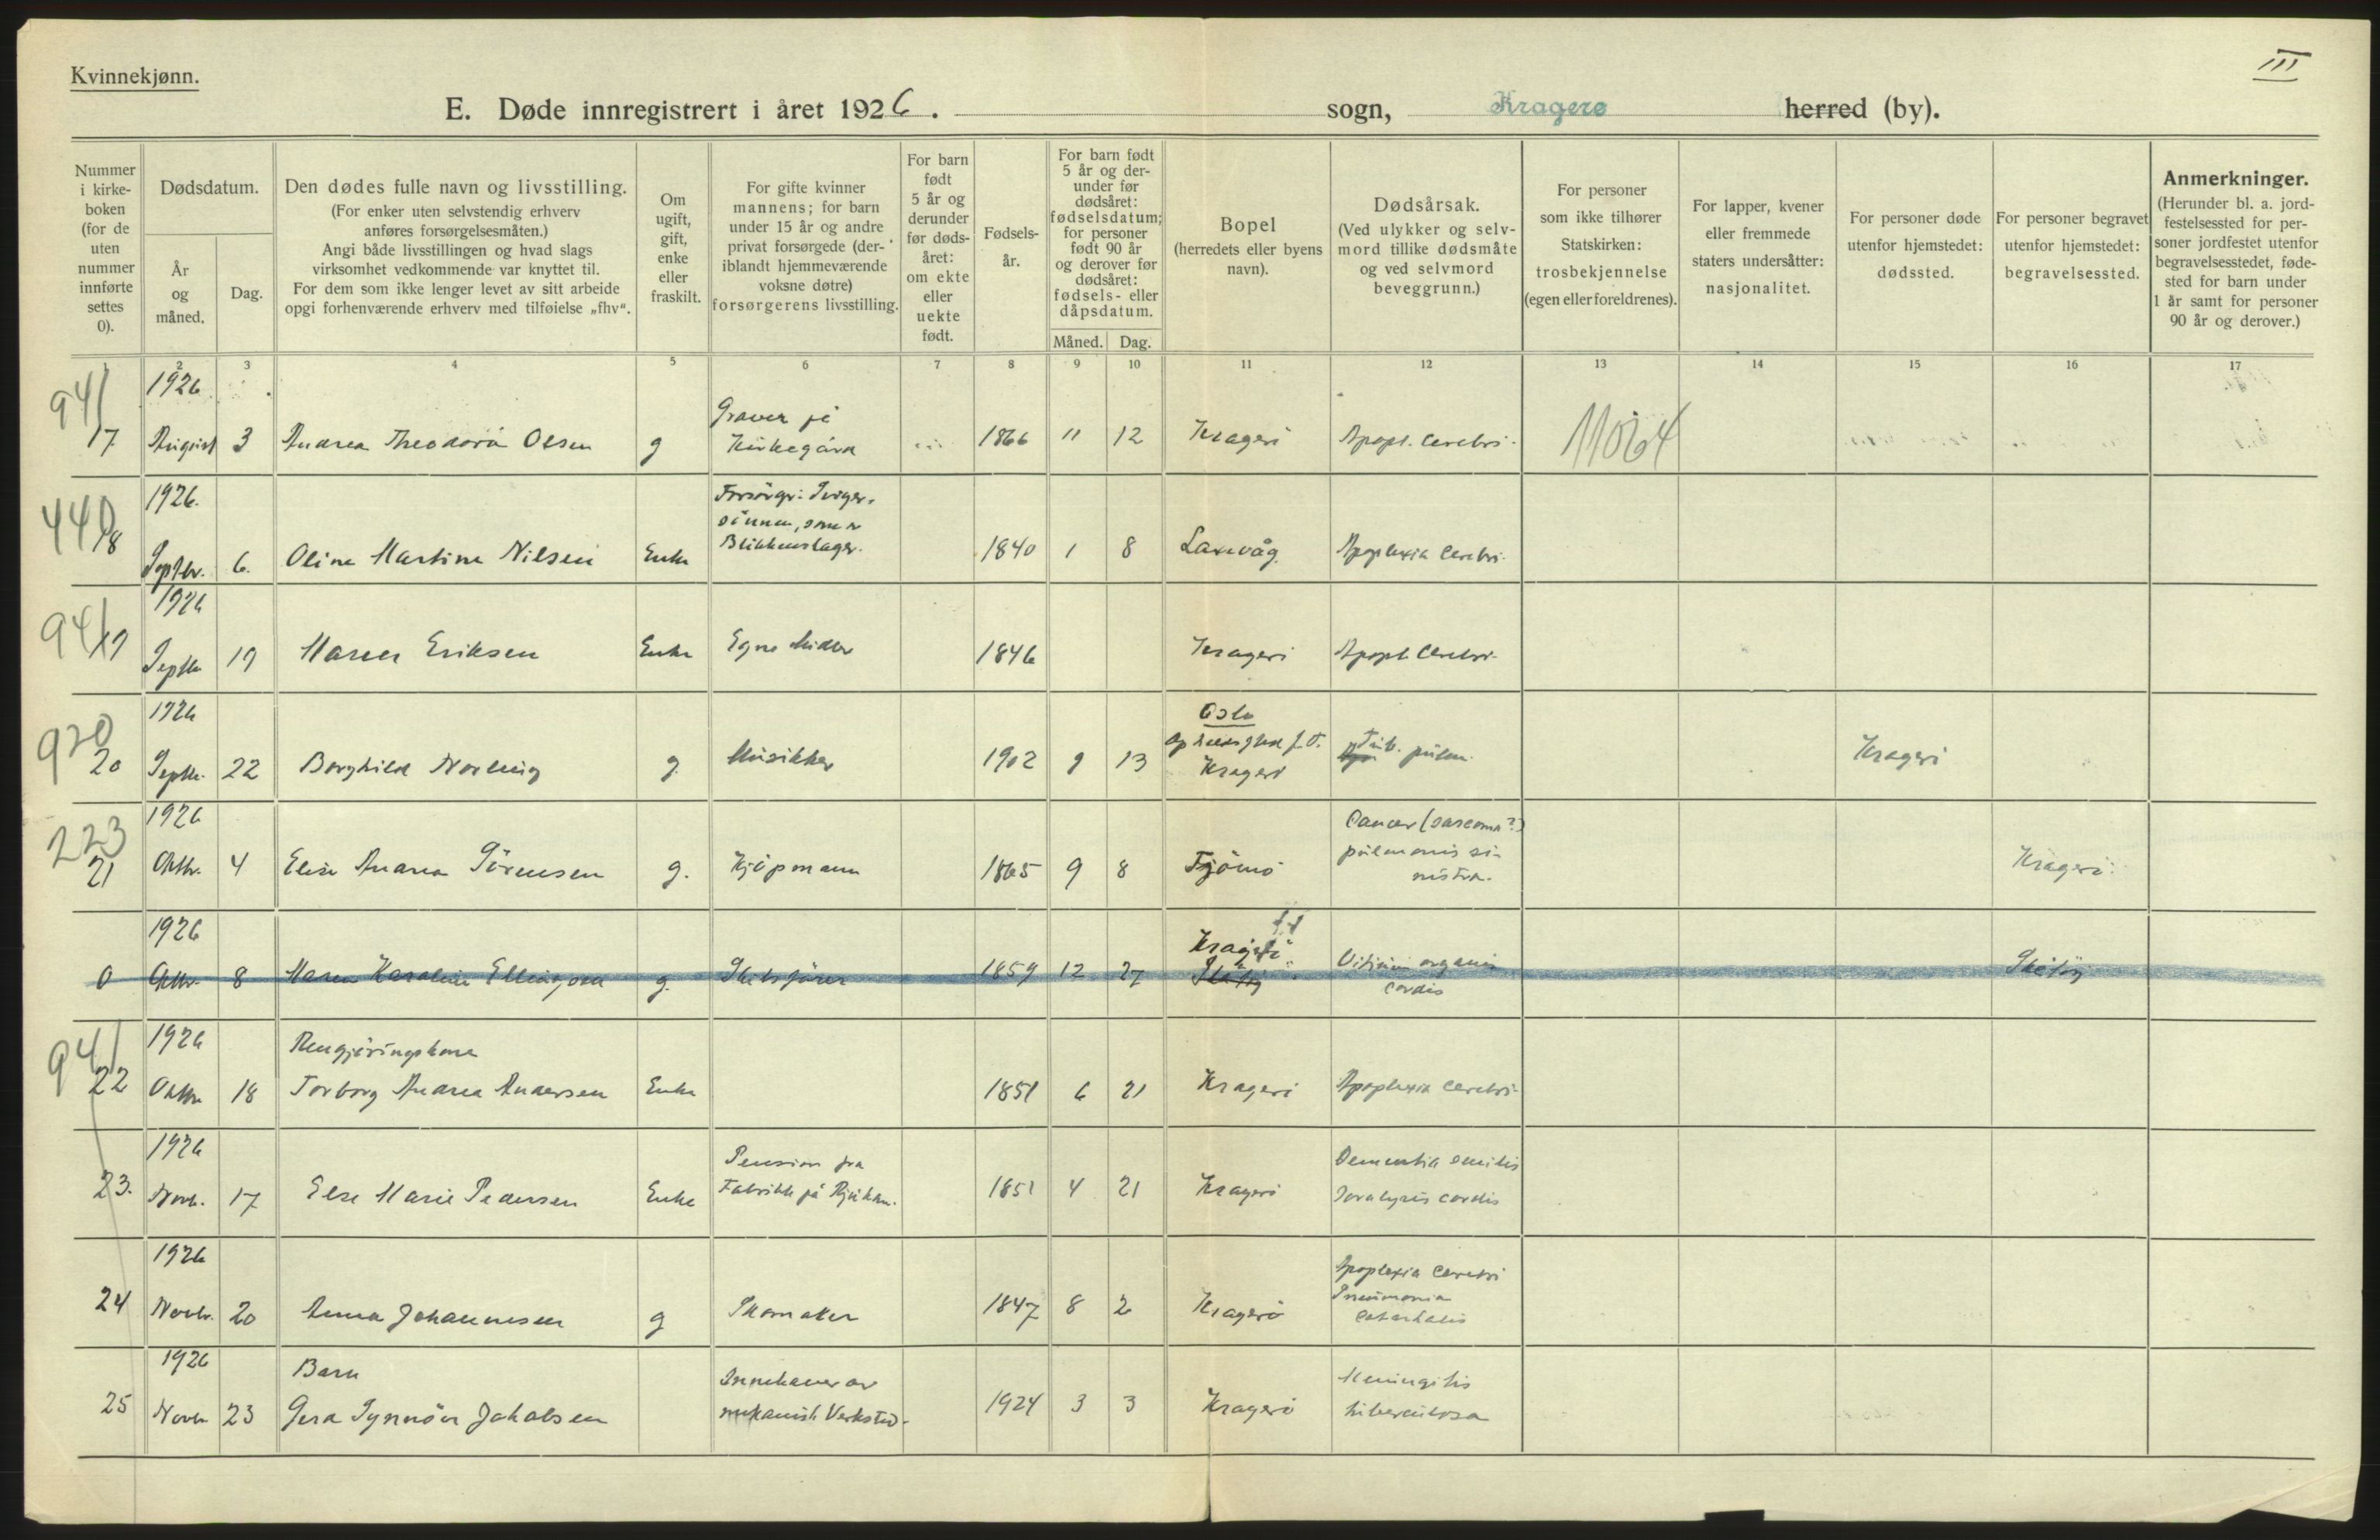 Kvinnekjønn.
III
E. Døde innregistrert i året 1926. sogn, Kragerø herred (by).
Nummer i kirke-boken (for de uten nummer innførte settes 0).
Dødsdatum.
År og måned.
Dag.
Den dødes fulle navn og livsstilling.
(For enker uten selvstendig erhverv anføres forsørgelsesmåten.)
Angi både livsstillingen og hvad slags virksomhet vedkommende var knyttet til.
For dem som ikke lenger levet av sitt arbeide opgi forhenværende erhverv med tilføielse „fhv“.
Om ugift, gift, enke eller fraskilt.
For gifte kvinner mannens; for barn under 15 år og andre privat forsørgede (deriblandt hjemmeværende voksne døtre) forsørgerens livsstilling.
For barn født 5 år og derunder før dødsåret: om ekte eller uekte født.
Fødselsår.
For barn født 5 år og derunder før dødsåret: fødselsdatum; for personer født 90 år og derover før dødsåret: fødsels- eller dåpsdatum.
Måned. Dag.
Bopel (herredets eller byens navn).
Dødsårsak.
(Ved ulykker og selvmord tillike dødsmåte og ved selvmord beveggrunn.)
For personer som ikke tilhører Statskirken: trosbekjennelse (egen eller foreldrenes).
For lapper, kvener eller fremmede staters undersåtter: nasjonalitet.
For personer døde utenfor hjemstedet: dødssted.
For personer begravet utenfor hjemstedet: begravelsessted.
Anmerkninger.
(Herunder bl. a. jordfestelsessted for personer jordfestet utenfor begravelsesstedet, fødested for barn under 1 år samt for personer 90 år og derover.)
1 2 3 4 5 6 7 8 9 10 11 12 13 14 15 16 17
941
1926
17 August 3 Andrea Theodora Olsen g Graver på Kirkegård 1866 11 12 Kragerø Apopl. cerebri. 11064
440
1926.
18 Septbr. 6. Oline Martine Nilsen Enke Forsörger: Sviger-sönnen, som er Blikkenslager. 1840 1 8 Laxevåg Apoplexia cerebri.
941
1926
19 Septbr 19 Maren Eriksen Enke Egne Midler 1846 Kragerö Apopl. cerebri.
920
1926
20 Septbr. 22 Borghild Norling g. Musikker 1902 9 13 Oslo Opholdssted f. T. Kragerö Tub. pulm. Kragerö
223
1926
21 Oktbr. 4 Elise Andrea Sörensen g. Kjöpmann 1865 9 8 Tjömö Cancer (sarcoma?) pulmonis sinistra. Kragerö.
1926
0 Oktbr. 8 Maren Karoline Ellingsen g. Skibsförer 1859 12 27 Kragerö Skåtöy Vitium organic cordis Skåtöy
941
1926
22 Oktbr 18 Rengjöringskone Torborg Andrea Andersen Enke 1851 6 21 Kragerö Apoplexia cerebri.
1926
23. Novb. 17 Else Marie Pedersen Enke Pension fra Fabrikk på Rjukan. 1851 4 21 Kragerö Dementia senilis Paralysis cordis
1926
24 Novbr. 20 Anna Johannesen g Skomaker 1847 8 2 Kragerö Apoplexia cerebri Pneumonia catarrhalis
1926
25 Novbr 23 Barn Gerd Synnöve Jakobsen Innehaver av mekanisk Verksted. 1924 3 3 Kragerö Meningitis tuberculosa